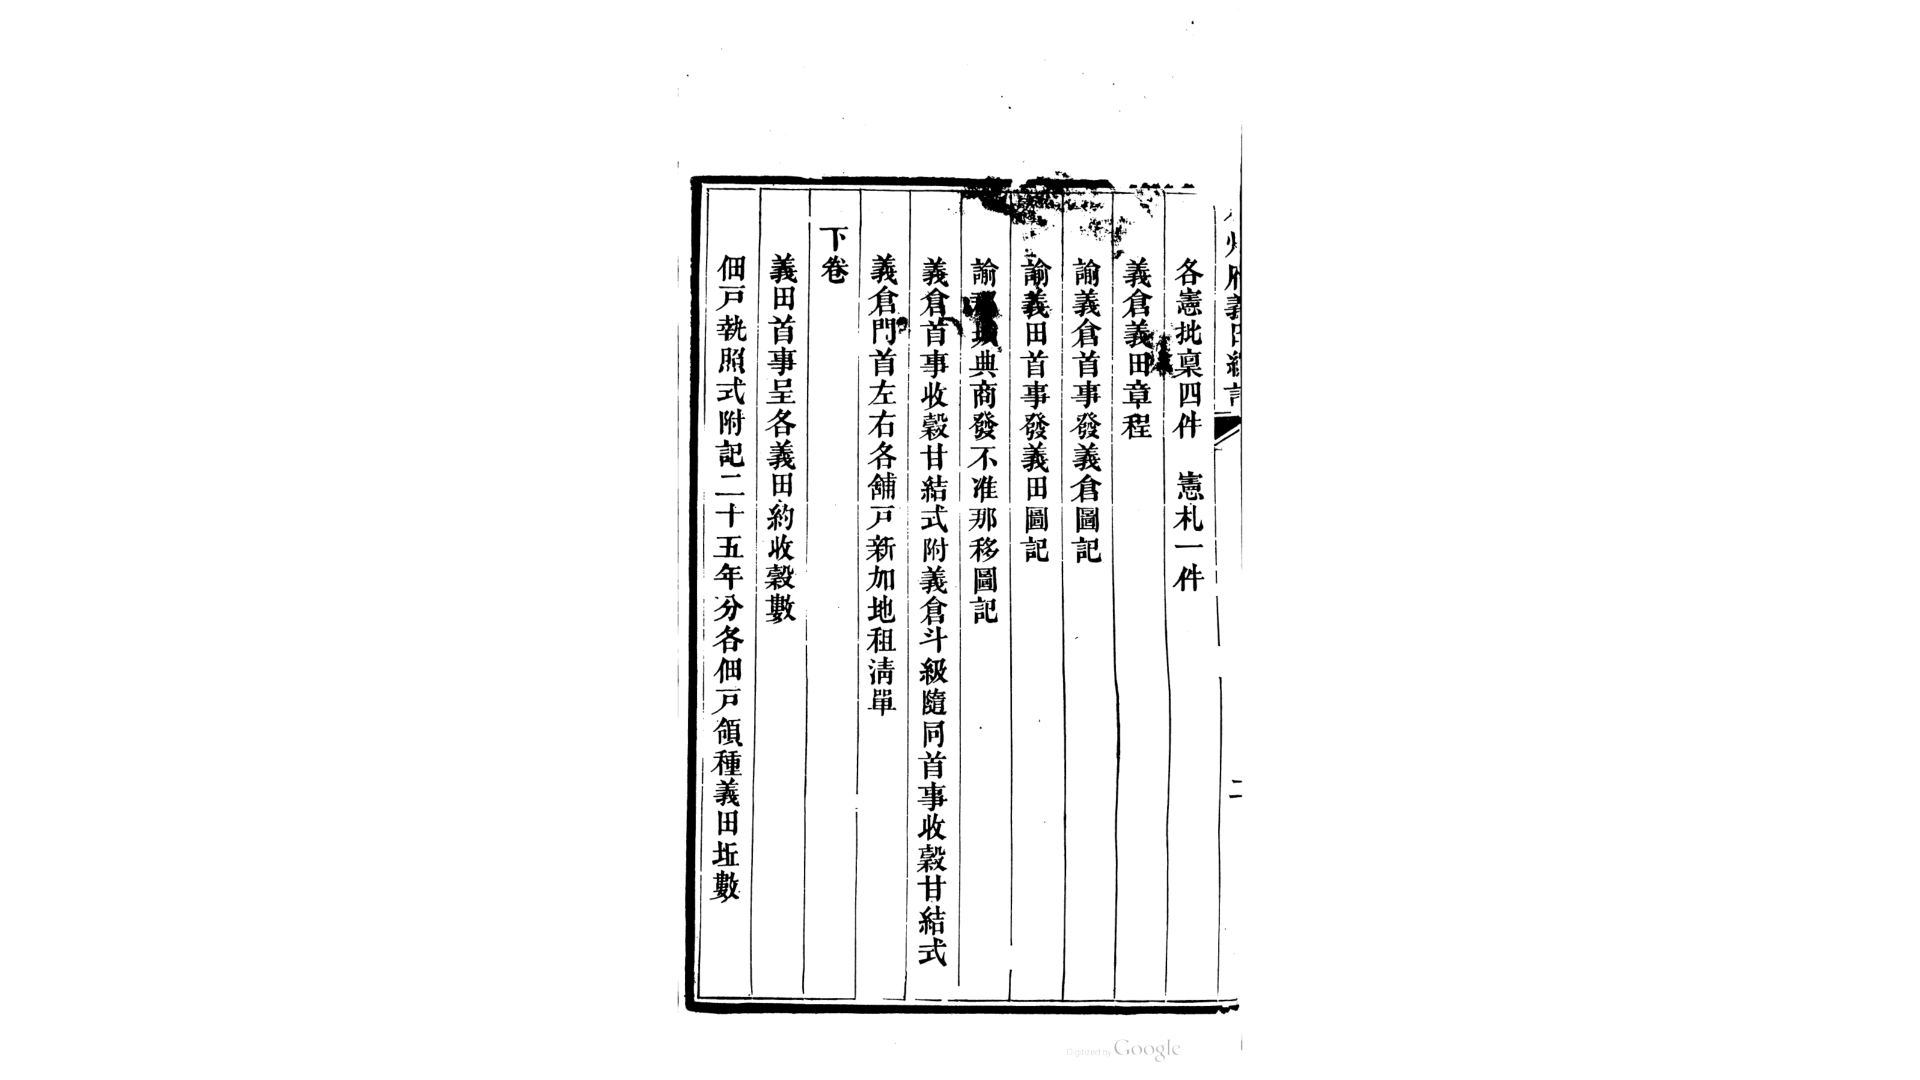 各憲批稟四件　憲札一件
義倉義田章程
諭義倉首事發義倉圖記
諭義田首事發義田圖記
諭郡城典商發不准那移圖記
義倉首事收穀甘結式附義倉斗級隨同首事收穀甘結式
義倉門首左右各舖戸新加地租淸單
下卷
義田首事呈各義田約收穀數
佃戸執照式附記二十五年分各佃戸領種義田坵數
二
Digitized by Google